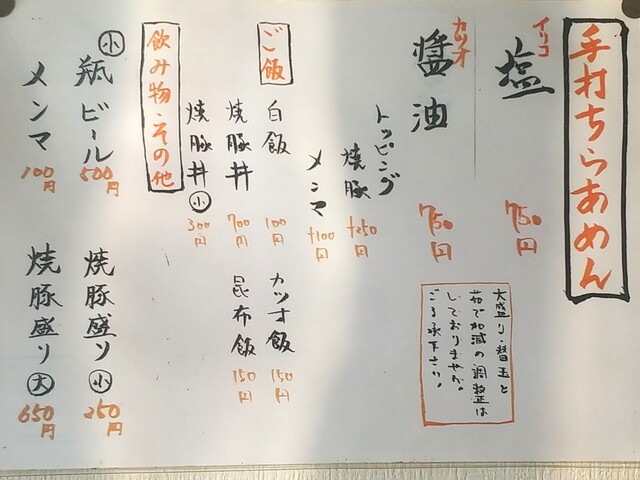 手打ちらあめん
イリコ
塩
750円
カツオ
醤油
750円
大盛り・替玉と
茹で加減の調整は
しておりません。
ご了承下さい。
トッピング
焼豚
+250円
メンマ
+100円
ご飯
白飯
100円
カツオ飯
150円
焼豚丼
700円
昆布飯
150円
焼豚丼小
300円
飲み物・その他
小瓶ビール
500円
焼豚盛り小
250円
メンマ
100円
焼豚盛り大
650円